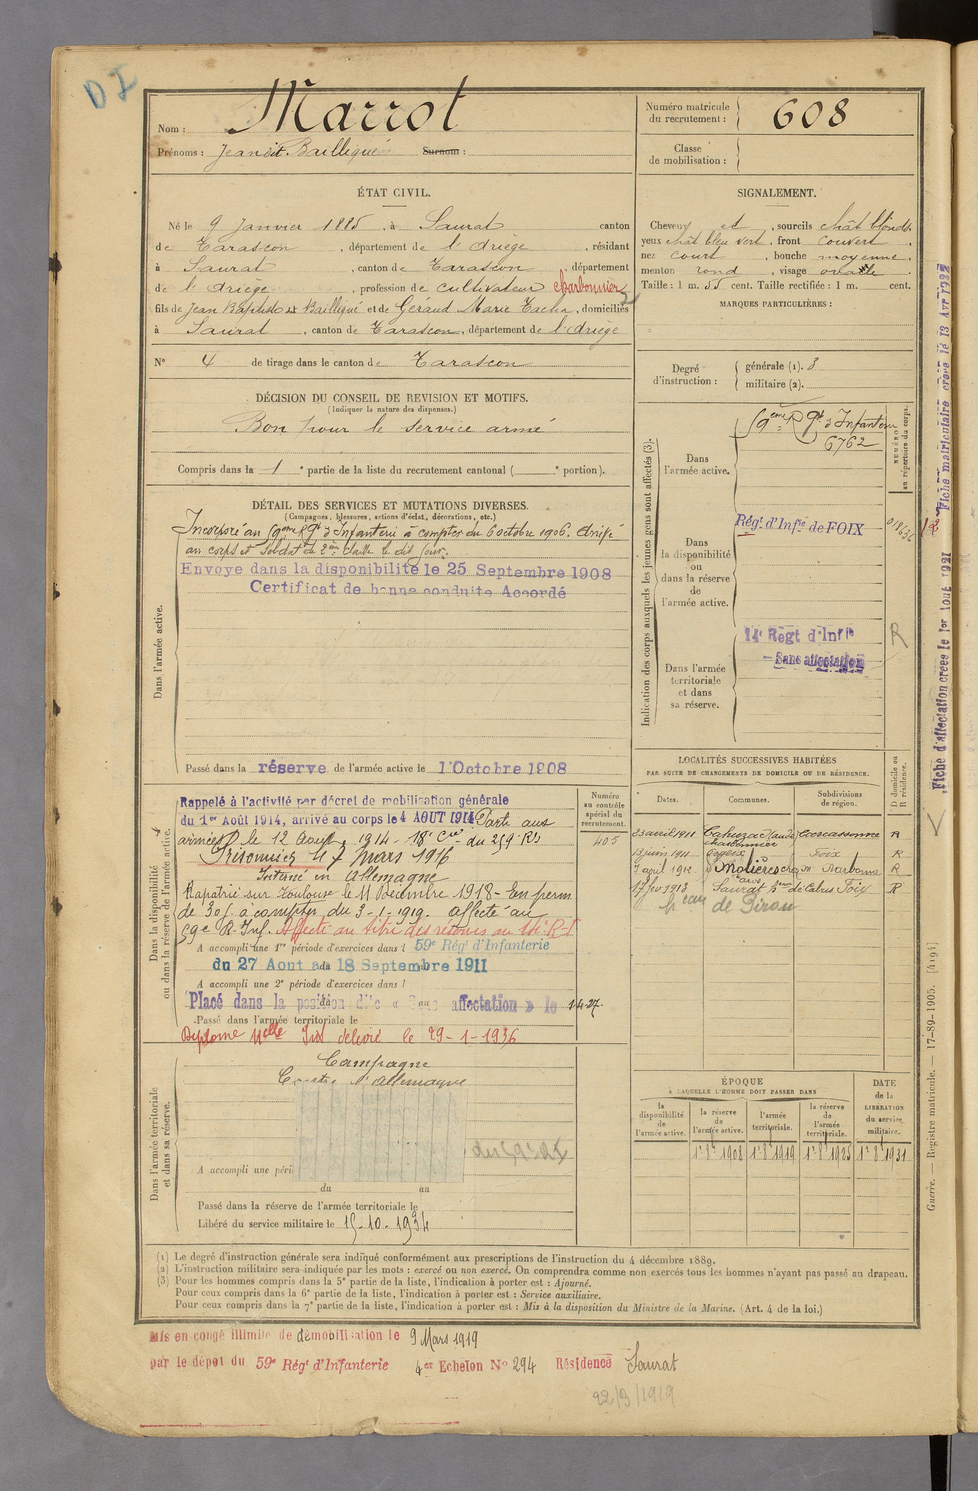 D I
Nom : Marrot
Prénoms : Jean dit Baillequé Surnom :
Numéro matricule du recrutement : 608
Classe de mobilisation :
ÉTAT CIVIL.
Né le 9 Janvier 1885, à Saurat canton
de Tarascon, département de l'Ariège, résidant
à Saurat, canton de Tarascon, département
de l'Ariège, profession de cultivateur charbonnier
fils de Jean Baptiste dit Baillequé et de Géraud Marie, domiciliés
à Saurat, canton de Tarascon, département de l'Ariège
N° 4 de tirage dans le canton de Tarascon
SIGNALEMENT.
Cheveux et, sourcils chât blonds
yeux chât bleu vert, front couvert,
nez court, bouche moyenne,
menton rond, visage ovale.
Taille : 1 m. 55 cent. Taille rectifiée : 1 m. cent.
MARQUES PARTICULIÈRES :
Degré d'instruction :
générale (1). 3
militaire (2).
DÉCISION DU CONSEIL DE REVISION ET MOTIFS.
(Indiquer la nature des dispenses.)
Bon pour le service armé
Compris dans la 1e partie de la liste du recrutement cantonal ( e portion).
DÉTAIL DES SERVICES ET MUTATIONS DIVERSES.
(Campagnes, blessures, actions d'éclat, décorations, etc.)
Dans l'armée active.
Incorporé au 59eme Rgt d'Infanterie à compter du 6 octobre 1906. Arrivé
au corps et Soldat de 2ème classe le dit jour.
Envoyé dans la disponibilité le 25 Septembre 1908
Certificat de bonne conduite Accordé
Passé dans la réserve de l'armée active le 1 Octobre 1908
Indication des corps auxquels les jeunes gens sont affectés (3).
NUMÉRO au répertoire du corps.
Dans l'armée active.
59eme Rgt d'Infanterie
6762
Dans la disponibilité ou dans la réserve de l'armée active.
Régt d'Infie de FOIX
Dans l'armée territoriale et dans sa réserve.
14e Regt d'Infie
Sans affectation
R
Dans la disponibilité ou dans la réserve de l'armée active.
Numéro au contrôle spécial du recrutement.
405
Rappelé à l'activité par décret de mobilisation générale
du 1er Août 1914, arrivé au corps le 4 AOUT 1914 Parti aux
armées le 12 Août 1914 - 18e Cie du 259 RI
Prisonnier le 7 mars 1916
Interné en Allemagne
Rapatrié sur Toulouse le 11 Décembre 1918 - En perm
de 30 j. à compter du 3-1-1919. affecté au
59e R. Inf. Affecté au titre des réserves au 14e R.I
A accompli une 1re période d'exercices dans l 59e Régt d'Infanterie
du 27 Aout au 18 Septembre 1911
A accompli une 2e période d'exercices dans l
Placé dans la position dite « Sans affectation » le 1-4-27.
Passé dans l'armée territoriale le
Diplome délivré le 29-1-1936
LOCALITÉS SUCCESSIVES HABITÉES
PAR SUITE DE CHANGEMENTS DE DOMICILE OU DE RÉSIDENCE.
Dates. Communes. Subdivisions de région. D domicile ou R résidence.
23 avril 1911 Cahuzac (Aude) Carcassonne R
charbonnier
13 juin 1911 Foix R
7 avril 1912 Molières Narbonne R
17 fev 1913 Saurat Foix R
Dans l'armée territoriale et dans sa réserve.
Campagne
Contre l'Allemagne
A accompli une péri
du au
Passé dans la réserve de l'armée territoriale le
Libéré du service militaire le 15-10-1934
ÉPOQUE
À LAQUELLE L'HOMME DOIT PASSER DANS
DATE de la LIBÉRATION du service militaire.
la disponibilité de l'armée active. la réserve de l'armée active. l'armée territoriale. la réserve de l'armée territoriale.
1er 8bre 1908 1er 8bre 1919 1er 8bre 1925 1er 8bre 1931
(1) Le degré d'instruction générale sera indiqué conformément aux prescriptions de l'instruction du 4 décembre 1889.
(2) L'instruction militaire sera indiquée par les mots : exercé ou non exercé. On comprendra comme non exercés tous les hommes n'ayant pas passé au drapeau.
(3) Pour les hommes compris dans la 5e partie de la liste, l'indication à porter est : Ajourné.
Pour ceux compris dans la 6e partie de la liste, l'indication à porter est : Service auxiliaire.
Pour ceux compris dans la 7e partie de la liste, l'indication à porter est : Mis à la disposition du Ministre de la Marine. (Art. 4 de la loi.)
Mis en congé illimité de démobilisation le 9 Mars 1919
par le dépôt du 59e Régt d'Infanterie 4er Echelon N° 294 Résidence Saurat
22/3/1919
Guerre. — Registre matricule. — 17-89-1905. [4194]
Fiche d'affectation créée le 1er Aout 1921
Fiche matriculaire créée le 13 Avr 1922